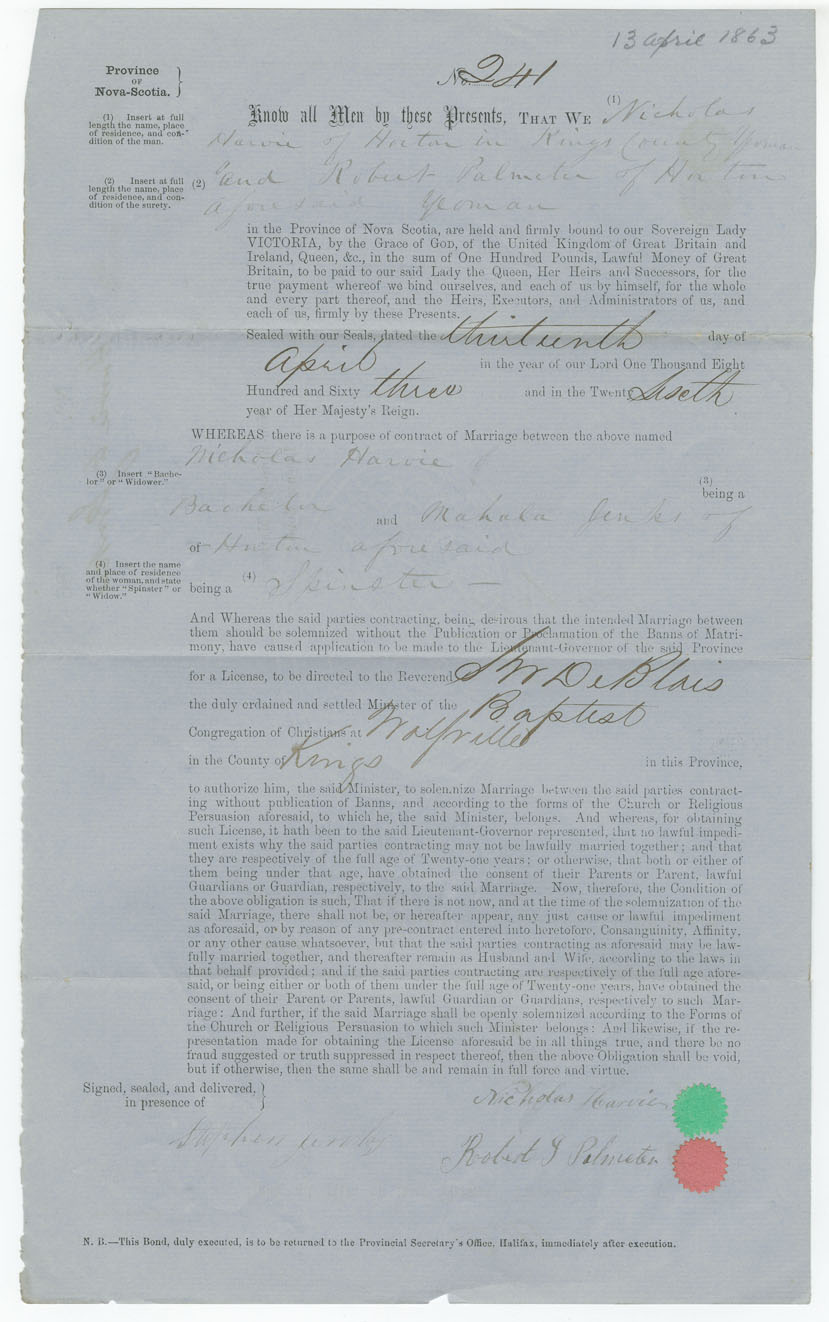 13 april 1863
Province
OF
Nova-Scotia.
No. 241
Know all Men by these Presents, THAT WE (1) Nicholas
(1) Insert at full
length the name, place
of residence, and con-
dition of the man.
Harvie of Horton in Kings County Yeoman
(2) Insert at full
length the name, place
of residence, and con-
dition of the surety.
(2) and Robert Palmeter of Horton
aforesaid Yeoman
in the Province of Nova Scotia, are held and firmly bound to our Sovereign Lady
VICTORIA, by the Grace of GOD, of the United Kingdom of Great Britain and
Ireland, Queen, &c., in the sum of One Hundred Pounds, Lawful Money of Great
Britain, to be paid to our said Lady the Queen, Her Heirs and Successors, for the
true payment whereof we bind ourselves, and each of us by himself, for the whole
and every part thereof, and the Heirs, Executors, and Administrators of us, and
each of us, firmly by these Presents.
Sealed with our Seals, dated the thirteenth day of
April in the year of our Lord One Thousand Eight
Hundred and Sixty three and in the Twenty Sixth
year of Her Majesty's Reign.
WHEREAS there is a purpose of contract of Marriage between the above named
Nicholas Harvie
(3) Insert "Bache-
lor" or "Widower."
(3)
being a
Bachelor and Mahala Jenks of
of Horton aforesaid
(4) Insert the name
and place of residence
of the woman, and state
whether "Spinster" or
"Widow."
being a (4) Spinster —
And Whereas the said parties contracting, being desirous that the intended Marriage between
them should be solemnized without the Publication or Proclamation of the Banns of Matri-
mony, have caused application to be made to the Lieutenant-Governor of the said Province
for a License, to be directed to the Reverend DeBlois
the duly ordained and settled Minister of the Baptist
Congregation of Christians at Wolfville
in the County of Kings in this Province,
to authorize him, the said Minister, to solemnize Marriage between the said parties contract-
ing without publication of Banns, and according to the forms of the Church or Religious
Persuasion aforesaid, to which he, the said Minister, belongs. And whereas, for obtaining
such License, it hath been to the said Lieutenant-Governor represented, that no lawful impedi-
ment exists why the said parties contracting may not be lawfully married together; and that
they are respectively of the full age of Twenty-one years; or otherwise, that both or either of
them being under that age, have obtained the consent of their Parents or Parent, lawful
Guardians or Guardian, respectively, to the said Marriage. Now, therefore, the Condition of
the above obligation is such, That if there is not now, and at the time of the solemnization of the
said Marriage, there shall not be, or hereafter appear, any just cause or lawful impediment
as aforesaid, or by reason of any pre-contract entered into heretofore, Consanguinity, Affinity,
or any other cause whatsoever, but that the said parties contracting as aforesaid may be law-
fully married together, and thereafter remain as Husband and Wife, according to the laws in
that behalf provided; and if the said parties contracting are respectively of the full age afore-
said, or being either or both of them under the full age of Twenty-one years, have obtained the
consent of their Parent or Parents, lawful Guardian or Guardians, respectively to such Mar-
riage: And further, if the said Marriage shall be openly solemnized according to the Forms of
the Church or Religious Persuasion to which such Minister belongs: And likewise, if the re-
presentation made for obtaining the License aforesaid be in all things true, and there be no
fraud suggested or truth suppressed in respect thereof, then the above Obligation shall be void,
but if otherwise, then the same shall be and remain in full force and virtue.
Signed, sealed, and delivered,
in presence of
Nicholas Harvie
Stephen
Robert Palmeter
N. B.—This Bond, duly executed, is to be returned to the Provincial Secretary's Office, Halifax, immediately after execution.